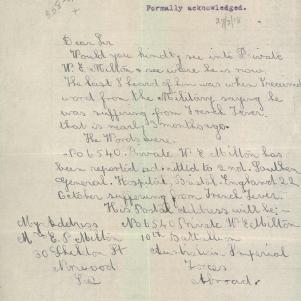 Formally acknowledged.
27/3/18
Dear Sir
Would you kindly see into Private
W. E. Milton & see where he is now
The last I heard of him was when I received
word from the Military saying he
was suffering from Trench Fever.
that is nearly 3 months ago.
The Words were.
No 6540. Private W E Milton has
been reported admitted to 2nd. Southern
General. Hospital, Bristol. England 22
October suffering from Trench Fever.
His Postal address will be:-
My address
No 6540 Private W E Milton
M E. P. Milton
10th Battalion
30 Sheldon St
Australian Imperial
Norwood
Forces
Abroad.